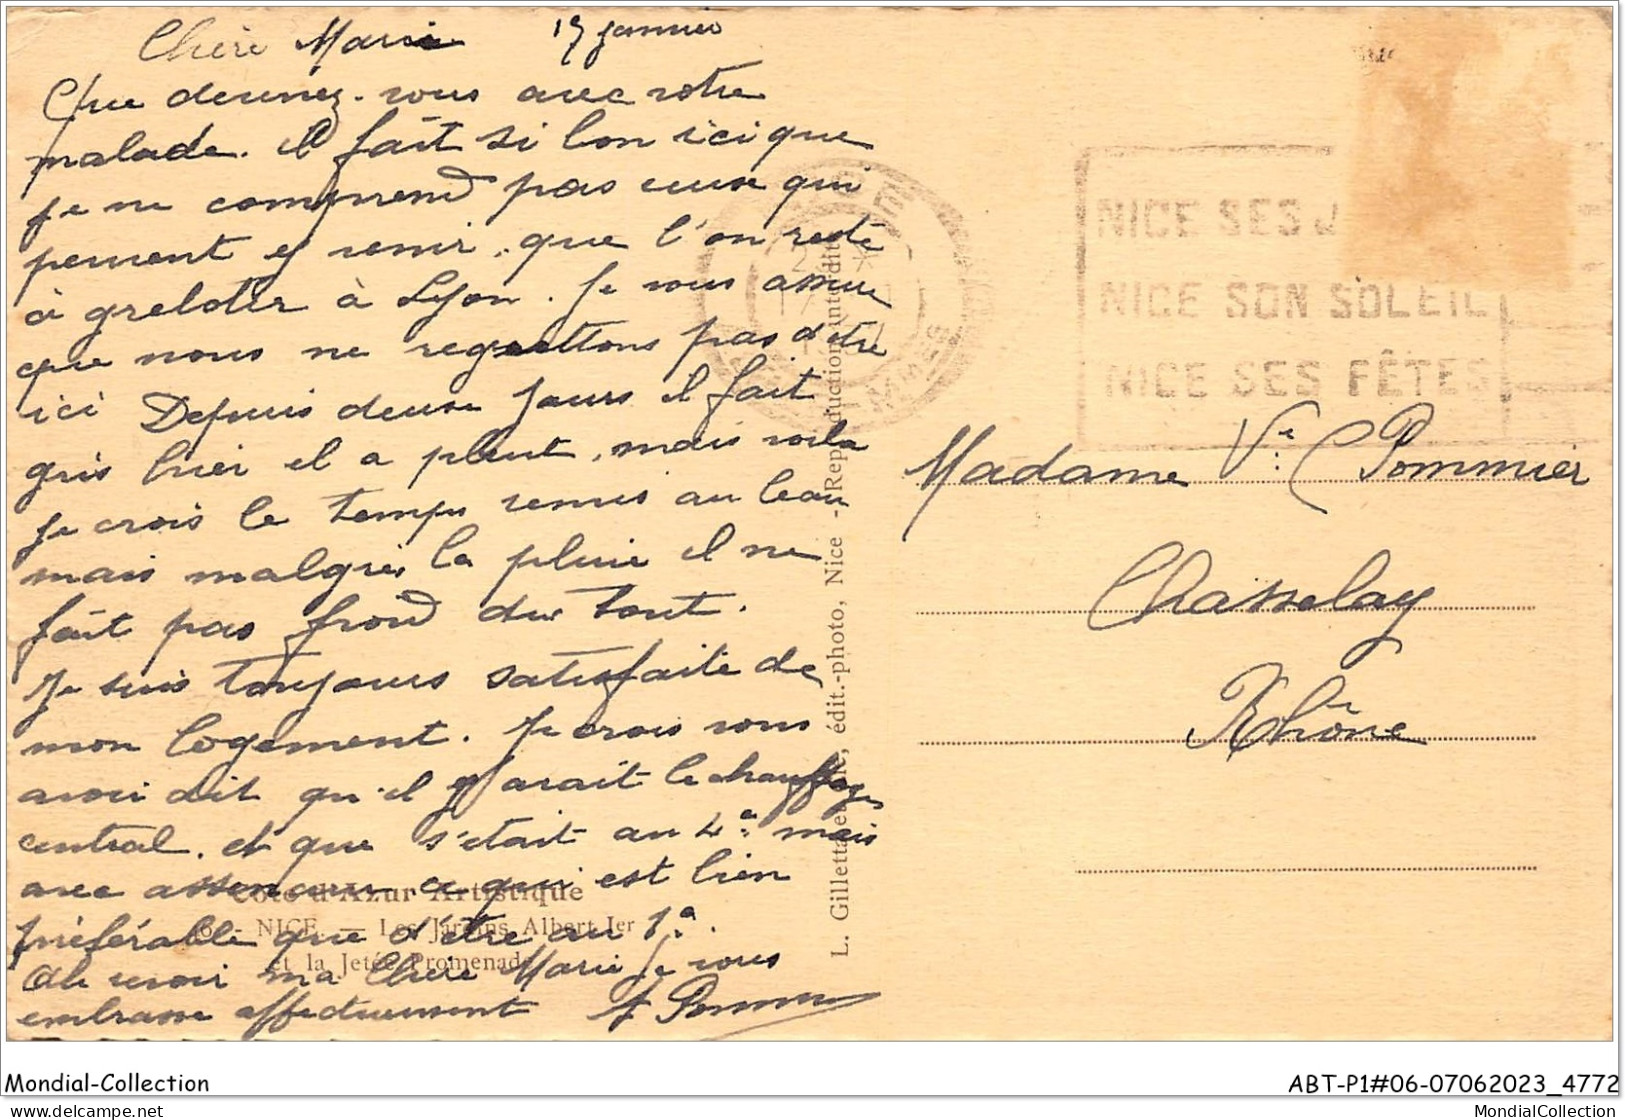 Chère Marie 17 janvier
Que devenez-vous avec votre
malade. il fait si bon ici que
je ne comprend pas ceux qui
peuvent y venir, que l'on reste
à greloter à Lyon. Je vous assure
que nous ne regrettons pas d'être
ici Depuis deux jours il fait
gris hier il a pleut, mais voila
je crois le temps remis au beau
mais malgré la pluie il ne
fait pas froid du tout.
Je suis toujours satisfaite de
mon logement. Je crois vous
avoir dit qu'il y avait le chauffage
central. et que s'était au 4e: mais
avec ascenseur ce qui est bien
préférable que d'être au 1e.
Au revoir ma Chère Marie je vous
embrasse affectueusement
Côte d'Azur Artistique
- NICE. — Les Jardins Albert Ier
et la Jetée Promenade
L. Gilletta édit.-photo, Nice - Reproduction interdite
NICE SES J
NICE SON SOLEIL
NICE SES FÊTES
Madame Ve: C Pommier
Chasselay
Rhône
Mondial-Collection
ABT-P1#06-07062023_4772
delcampe.net
MondialCollection